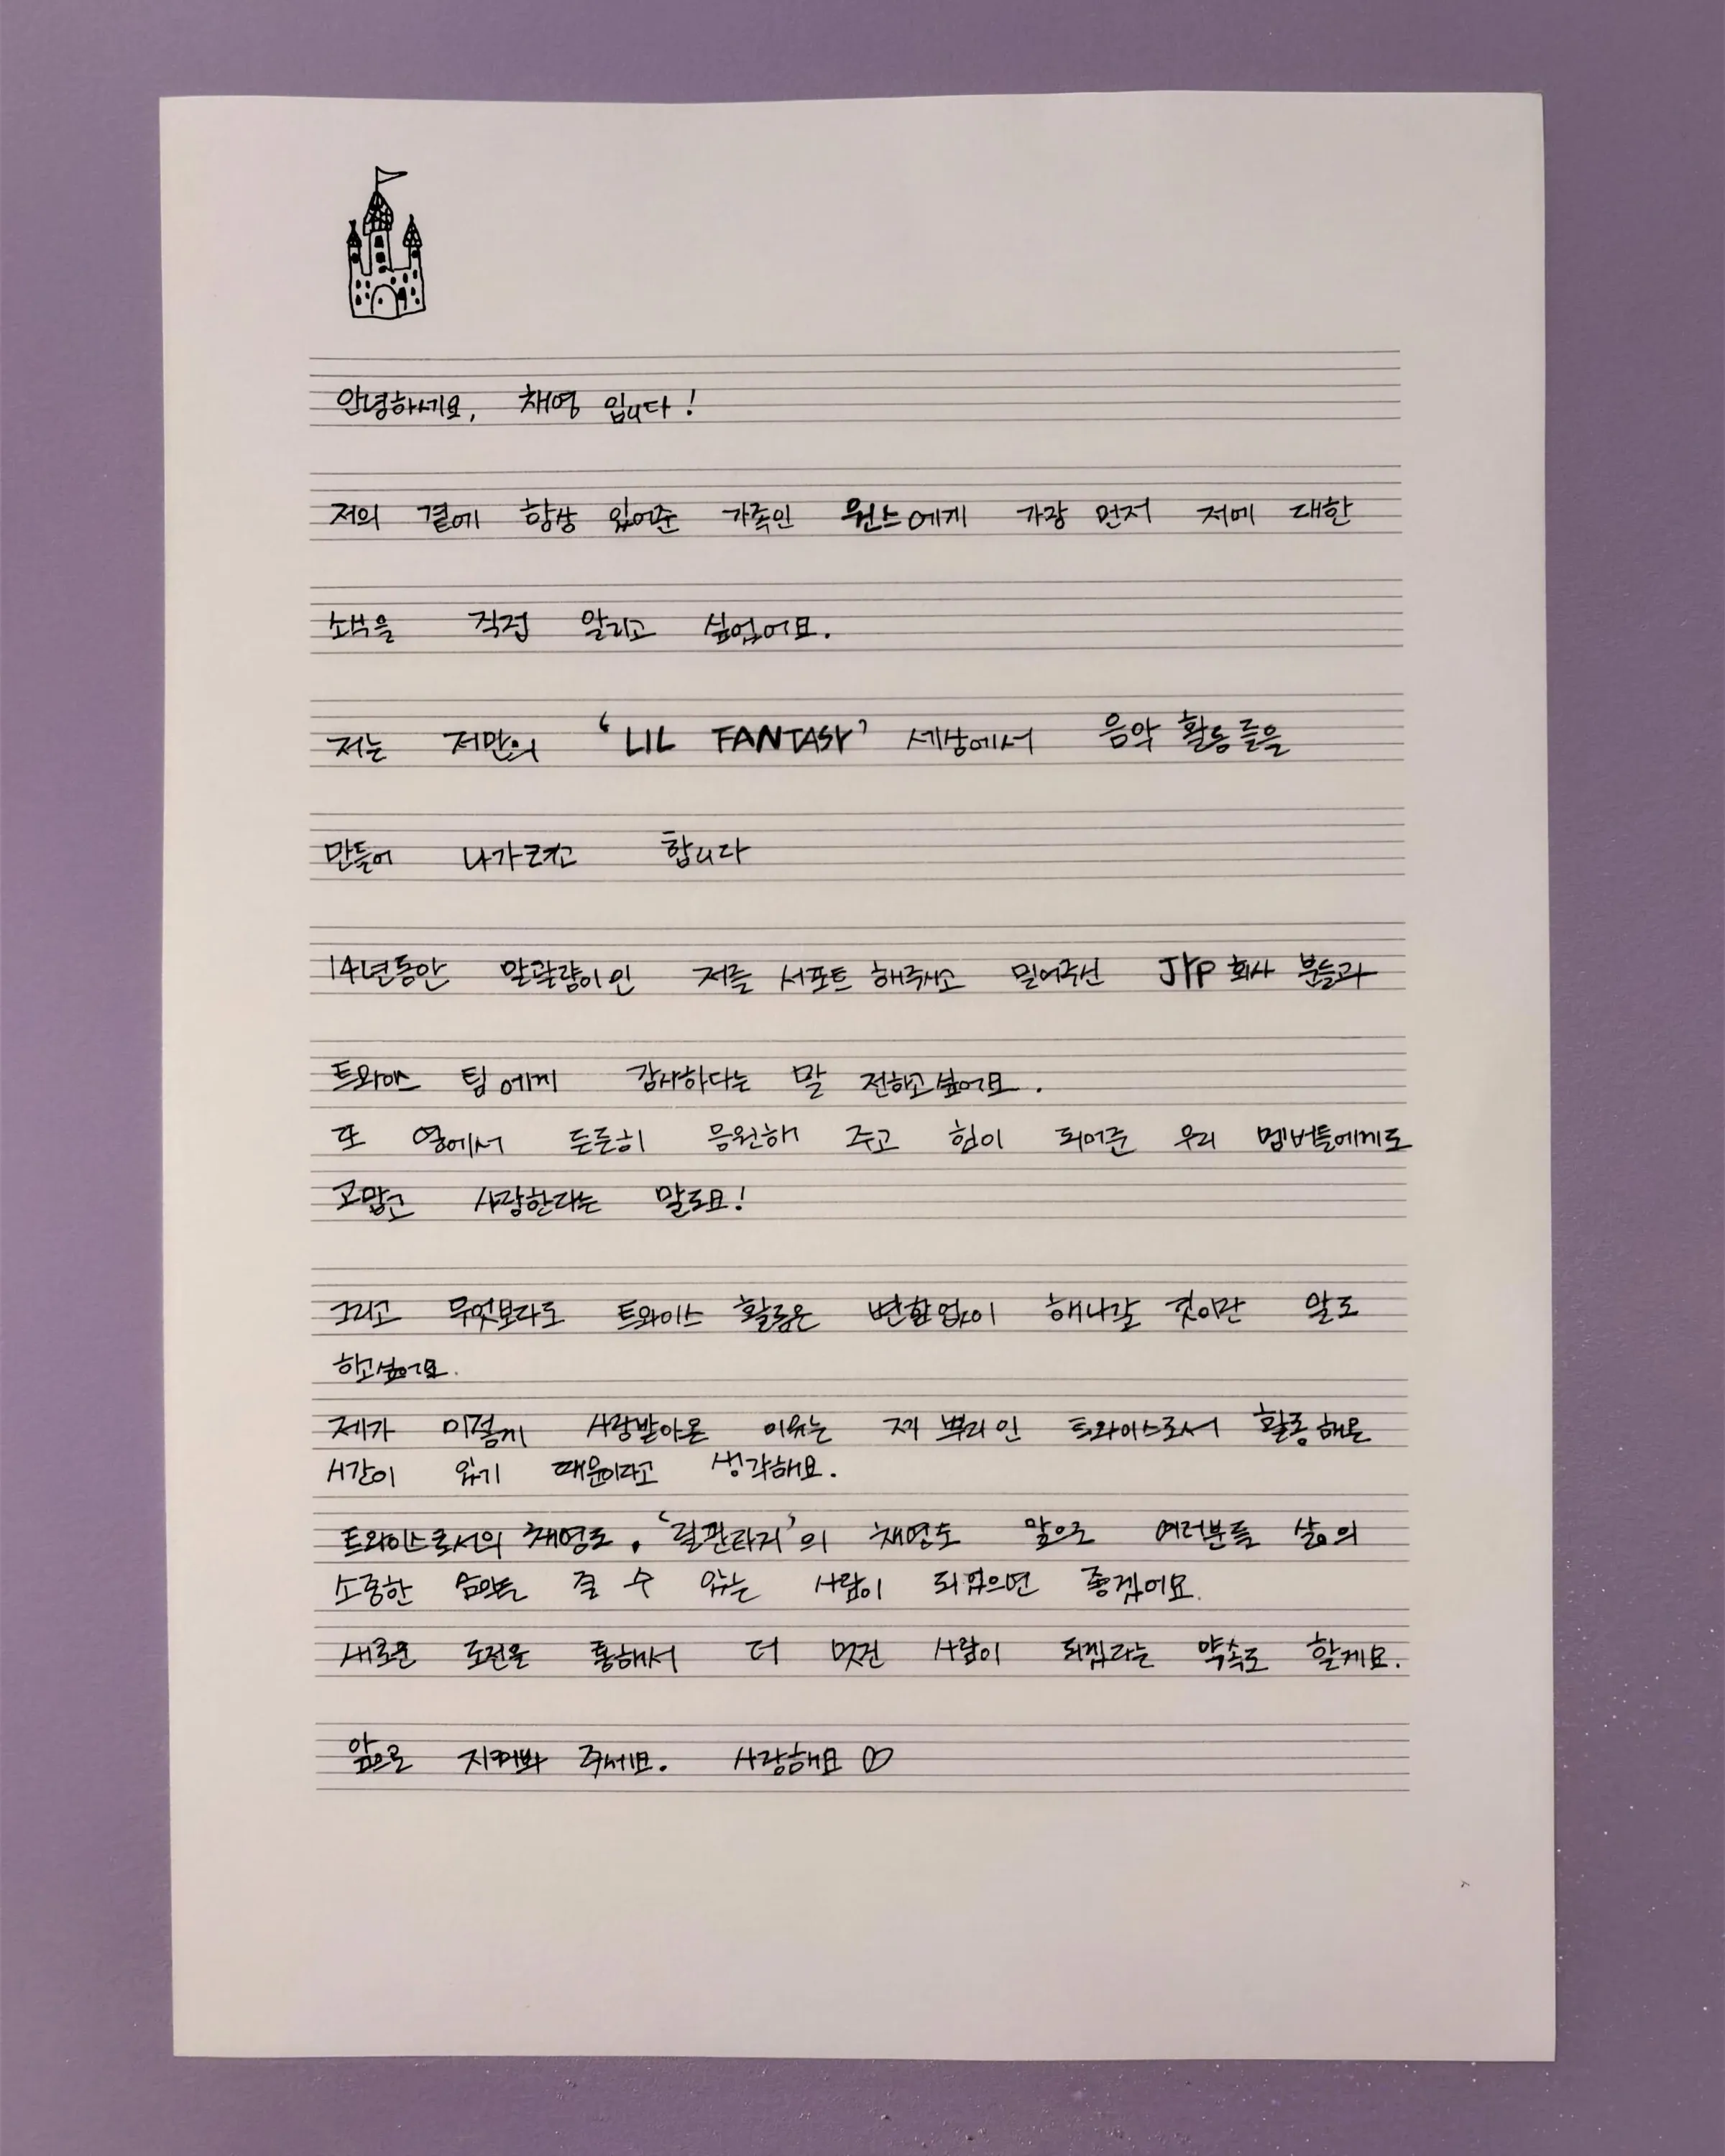 안녕하세요, 채영 입니다!
저의 곁에 항상 있어준 가족인 원스에게 가장 먼저 저에 대한
소식을 직접 알리고 싶었어요.
저는 저만의 'LIL FANTASY' 세상에서 음악 활동들을
만들어 나가려고 합니다
14년동안 말괄량이인 저를 서포트 해주시고 밀어주신 JYP 회사 분들과
트와이스 팀에게 감사하다는 말 전하고싶어요.
또 옆에서 든든히 응원해 주고 힘이 되어준 우리 멤버들에게도
고맙고 사랑한다는 말로요!
그리고 무엇보다도 트와이스 활동은 변함없이 해나갈 것이란 말도
하고싶어요.
제가 이렇게 사랑받아온 이유는 제 뿌리인 트와이스로서 활동해온
시간이 있기 때문이라고 생각해요.
트와이스로서의 채영도, '릴판타지'의 채영도 앞으로 여러분들 삶의
소중한 순간들 줄 수 있는 사람이 되었으면 좋겠어요.
새로운 도전을 통해서 더 멋진 사람이 되겠다는 약속도 할게요.
앞으로 지켜봐 주세요. 사랑해요♡